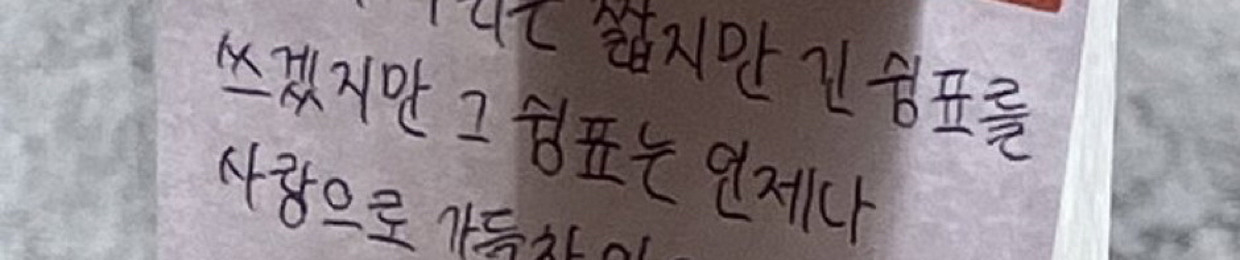 짧지만 긴 쉼표를
쓰겠지만 그 쉼표는 언제나
사랑으로 가득